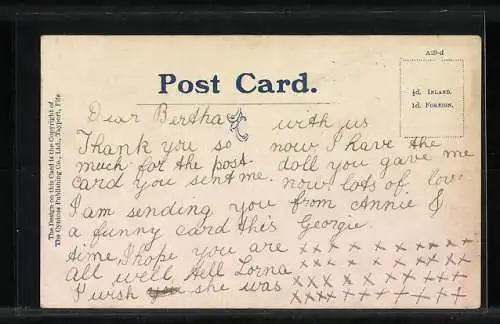 A29-d
Post Card.
½d. INLAND.
1d. FOREIGN.
The Design on this Card is the Copyright of
The Cynicus Publishing Co., Ltd., Tayport, Fife
Dear Bertha
Thank you so
much for the post-
card you sent me.
I am sending you
a funny card this
time I hope you are
all well tell Lorna
I wish you she was
with us
now I have the
doll you gave me
now. lots of love
from Annie &
Georgie
x x x x x x x x x x
x x x x x x x x x x
x x x x x x x x x x
x x x x x x x x x x